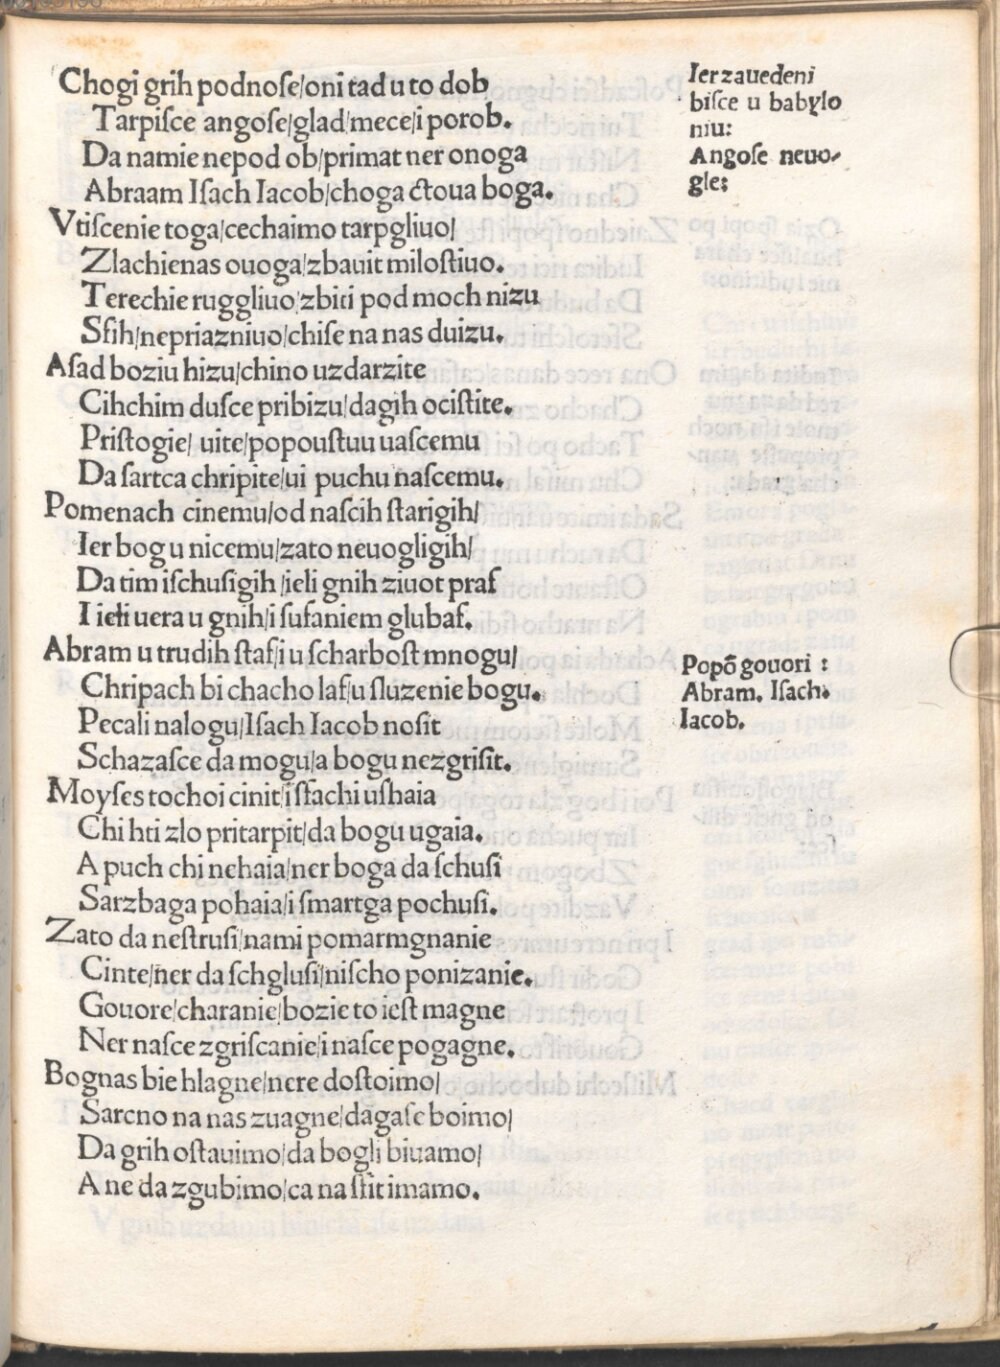 Chogi grih podnoſe/oni tad u to dob
Tarpiſce angoſe/glad/mece/i porob.
Da namie nepod ob/primat ner onoga
Abraam Iſach Iacob/choga ctoua boga.
Vtiſcenie toga/cechaimo tarpgliuo/
Zlachienas ouoga/zbauit miloſtiuo.
Terechie ruggliuo/zbiti pod moch nizu
Sſih/nepriazniuo/chiſe na nas duizu.
Aſad boziu hizu/chino uzdarzite
Cihchim duſce pribizu/dagih ociſtite.
Priſtogie/ uite/popouſtuu uaſcemu
Da ſartca chripite/ui puchu naſcemu.
Pomenach cinemu/od naſcih ſtarigih/
Ier bog u nicemu/zato neuogligih/
Da tim iſchuſigih/ieli gnih ziuot praf
I ieli uera u gnih/i ſufaniem glubaf.
Abram u trudih ſtaf/i u ſcharboſt mnogu/
Chripach bi chacho laf/u ſluzenie bogu.
Pecali nalogu/Iſach Iacob noſit
Schazaſce da mogu/a bogu nezgriſit.
Moyſes tochoi cinit/i ſtachi uſhaia
Chi hti zlo pritarpit/da bogu ugaia.
A puch chi nehaia/ner boga da ſchuſi
Sarzbaga pohaia/i ſmartga pochuſi.
Zato da neſtruſi/nami pomarmgnanie
Cinte/ner da ſchgluſi/niſcho ponizanie.
Gouore/charanie/bozie to ieſt magne
Ner naſce zgriſcanie/i naſce pogagne.
Bognas bie hlagne/nere doſtoimo/
Sarcno na nas zuagne/dagaſe boimo/
Da grih oſtauimo/da bogli biuamo/
A ne da zgubimo/ca na ſtit imamo.
Ier zauedeni
biſce u babylo
niu:
Angoſe neuo-
gle:
Popō gouori :
Abram. Iſach.
Iacob.